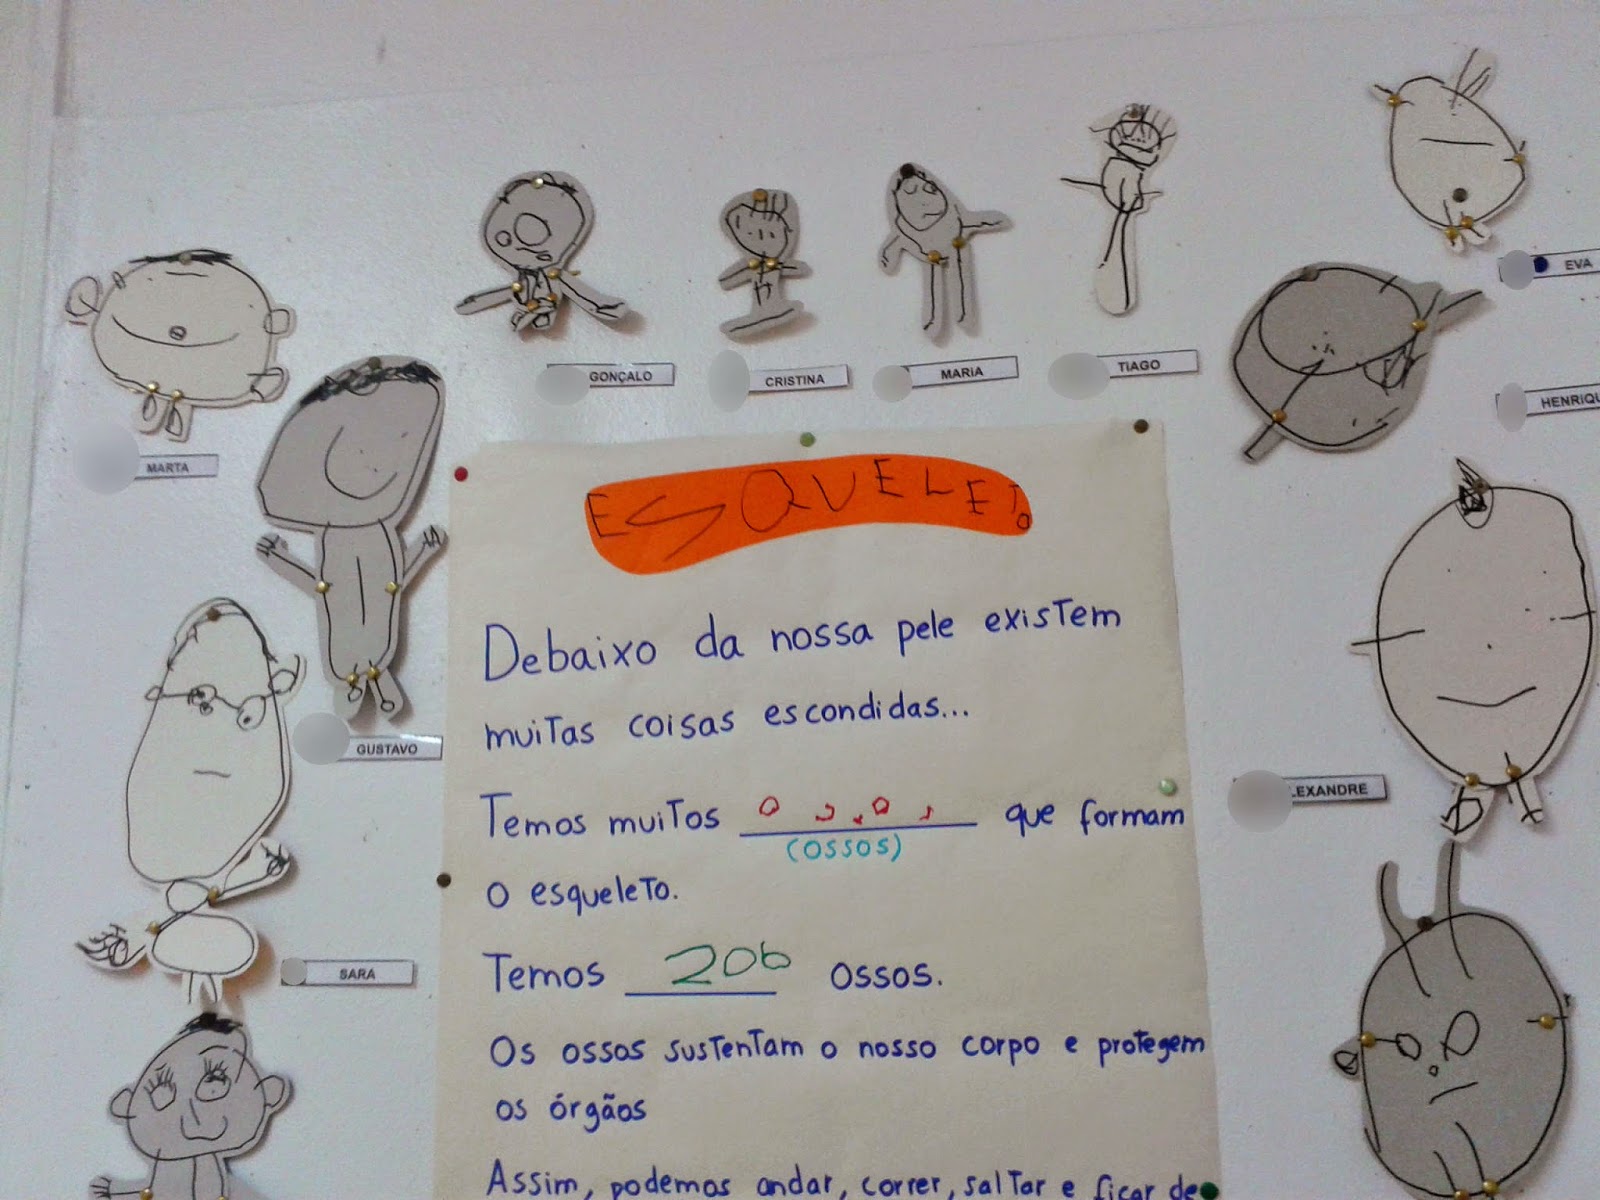 GONÇALO
CRISTINA
MARIA
TIAGO
EVA
HENRIQU
MARTA
GUSTAVO
SARA
LEXANDRE
ESQUELETO
Debaixo da nossa pele existem
muitas coisas escondidas...
Temos muitos que formam
(OSSOS)
o esqueleto.
Temos 206 ossos.
Os ossos sustentam o nosso corpo e protegem
os órgãos
Assim, podemos andar, correr, saltar e ficar de